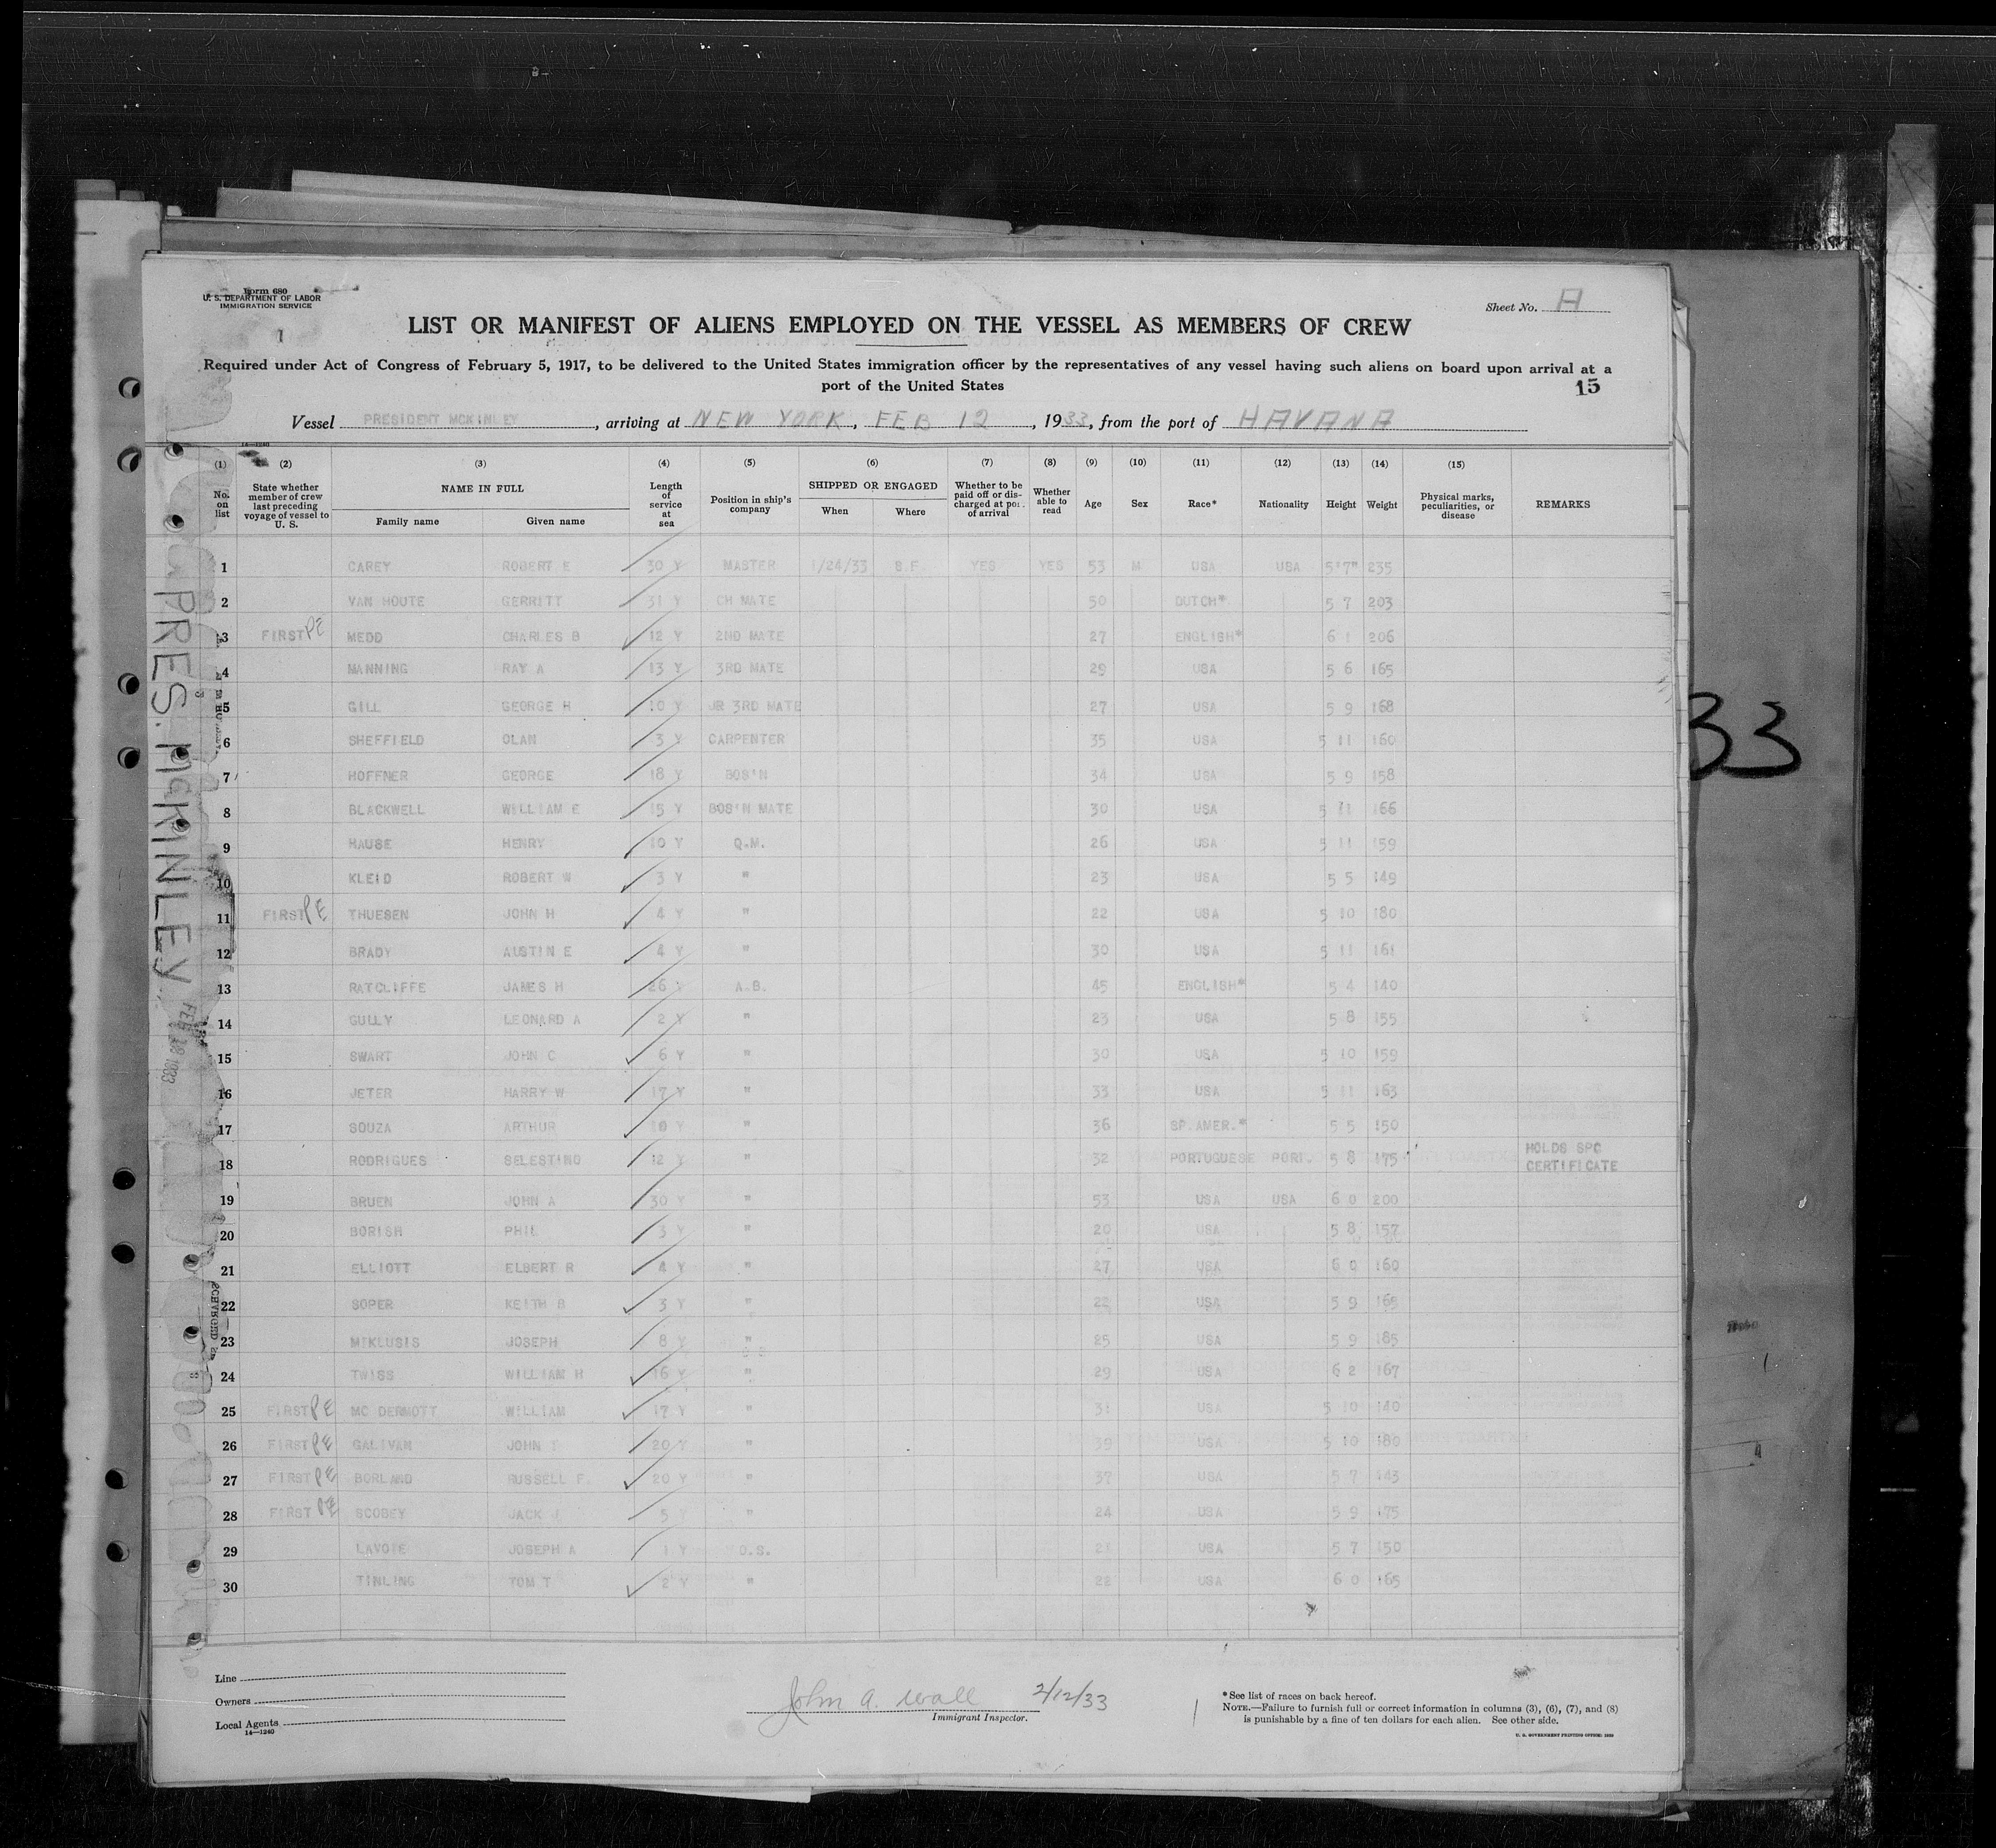 Form 680
U. S. DEPARTMENT OF LABOR
IMMIGRATION SERVICE
Sheet No. A
LIST OR MANIFEST OF ALIENS EMPLOYED ON THE VESSEL AS MEMBERS OF CREW
Required under Act of Congress of February 5, 1917, to be delivered to the United States immigration officer by the representatives of any vessel having such aliens on board upon arrival at a
port of the United States
15
Vessel PRESIDENT MCKINLEY, arriving at NEW YORK, FEB 12, 1933, from the port of HAVANA
14—1240
(1) (2) (3) (4) (5) (6) (7) (8) (9) (10) (11) (12) (13) (14) (15)
No. on list State whether member of crew last preceding voyage of vessel to U. S. NAME IN FULL Family name Given name Length of service at sea Position in ship's company SHIPPED OR ENGAGED When Where Whether to be paid off or discharged at port of arrival Whether able to read Age Sex Race* Nationality Height Weight Physical marks, peculiarities, or disease REMARKS
1 CAREY ROBERT E 30 Y MASTER 1/24/33 S.F. YES YES 53 M USA USA 5'7" 235
2 VAN HOUTE GERRITT 31 Y CH MATE 50 DUTCH* 5 7 203
3 FIRST PE MEDD CHARLES B 12 Y 2ND MATE 27 ENGLISH* 6 1 206
4 MANNING RAY A 13 Y 3RD MATE 29 USA 5 6 165
5 GILL GEORGE H 10 Y JR 3RD MATE 27 USA 5 9 168
6 SHEFFIELD OLAN 3 Y CARPENTER 35 USA 5 11 160
7 HOFFNER GEORGE 18 Y BOS'N 34 USA 5 9 158
8 BLACKWELL WILLIAM E 15 Y BOS'N MATE 30 USA 5 11 166
9 HAUSE HENRY 10 Y Q.M. 26 USA 5 11 159
10 KLEID ROBERT W 3 Y " 23 USA 5 5 149
11 FIRST PE THUESEN JOHN H 4 Y " 22 USA 5 10 180
12 BRADY AUSTIN E 4 Y " 30 USA 5 11 161
13 RATCLIFFE JAMES H 26 Y A.B. 45 ENGLISH* 5 4 140
14 GULLY LEONARD A 2 Y " 23 USA 5 8 155
15 SWART JOHN C 6 Y " 30 USA 5 10 159
16 JETER HARRY W 17 Y " 33 USA 5 11 163
17 SOUZA ARTHUR Y " 36 SP.AMER.* 5 5 150
18 RODRIGUES SELESTINO 12 Y " 32 PORTUGUESE PORT. 5 8 175 HOLDS SPC CERTIFICATE
19 BRUEN JOHN A 30 Y " 53 USA USA 6 0 200
20 BORISH PHIL 3 Y " 20 USA 5 8 157
21 ELLIOTT ELBERT R 4 Y " 27 USA 6 0 160
22 SOPER KEITH B 3 Y " 22 USA 5 9 165
23 MIKLUSIS JOSEPH 8 Y " 25 USA 5 9 185
24 TWISS WILLIAM H 16 Y " 29 USA 6 2 167
25 FIRST PE MC DERMOTT WILLIAM 17 Y " 31 USA 5 10 140
26 FIRST PE GALIVAN JOHN T 20 Y " 39 USA 5 10 180
27 FIRST PE BORLAND RUSSELL F. 20 Y " 37 USA 5 7 143
28 FIRST PE SCOBEY JACK J 5 Y " 24 USA 5 9 175
29 LAVOIE JOSEPH A 1 Y O.S. 21 USA 5 7 150
30 TINLING TOM T 2 Y " 22 USA 6 0 165
PRES. McKINLEY
33
Line
Owners
Local Agents
14—1240
John A. Wall 2/12/33
Immigrant Inspector.
*See list of races on back hereof.
NOTE.—Failure to furnish full or correct information in columns (3), (6), (7), and (8)
is punishable by a fine of ten dollars for each alien. See other side.
U. S. GOVERNMENT PRINTING OFFICE